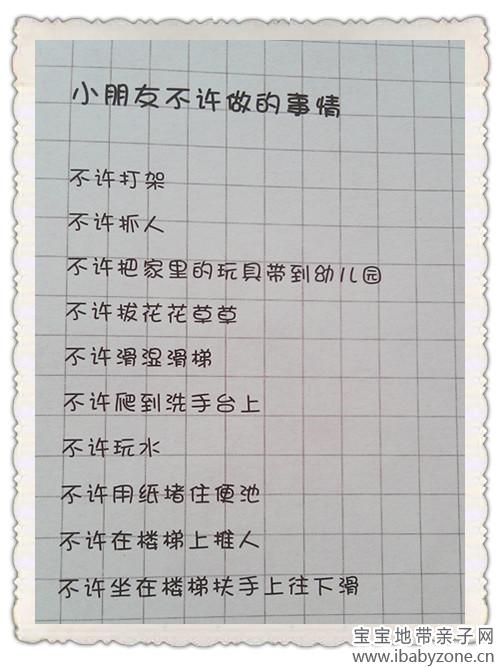 小朋友不许做的事情
不许打架
不许抓人
不许把家里的玩具带到幼儿园
不许拔花花草草
不许滑湿滑梯
不许爬到洗手台上
不许玩水
不许用纸堵住便池
不许在楼梯上推人
不许坐在楼梯扶手上往下滑
宝宝地带亲子网
www.ibabyzone.cn